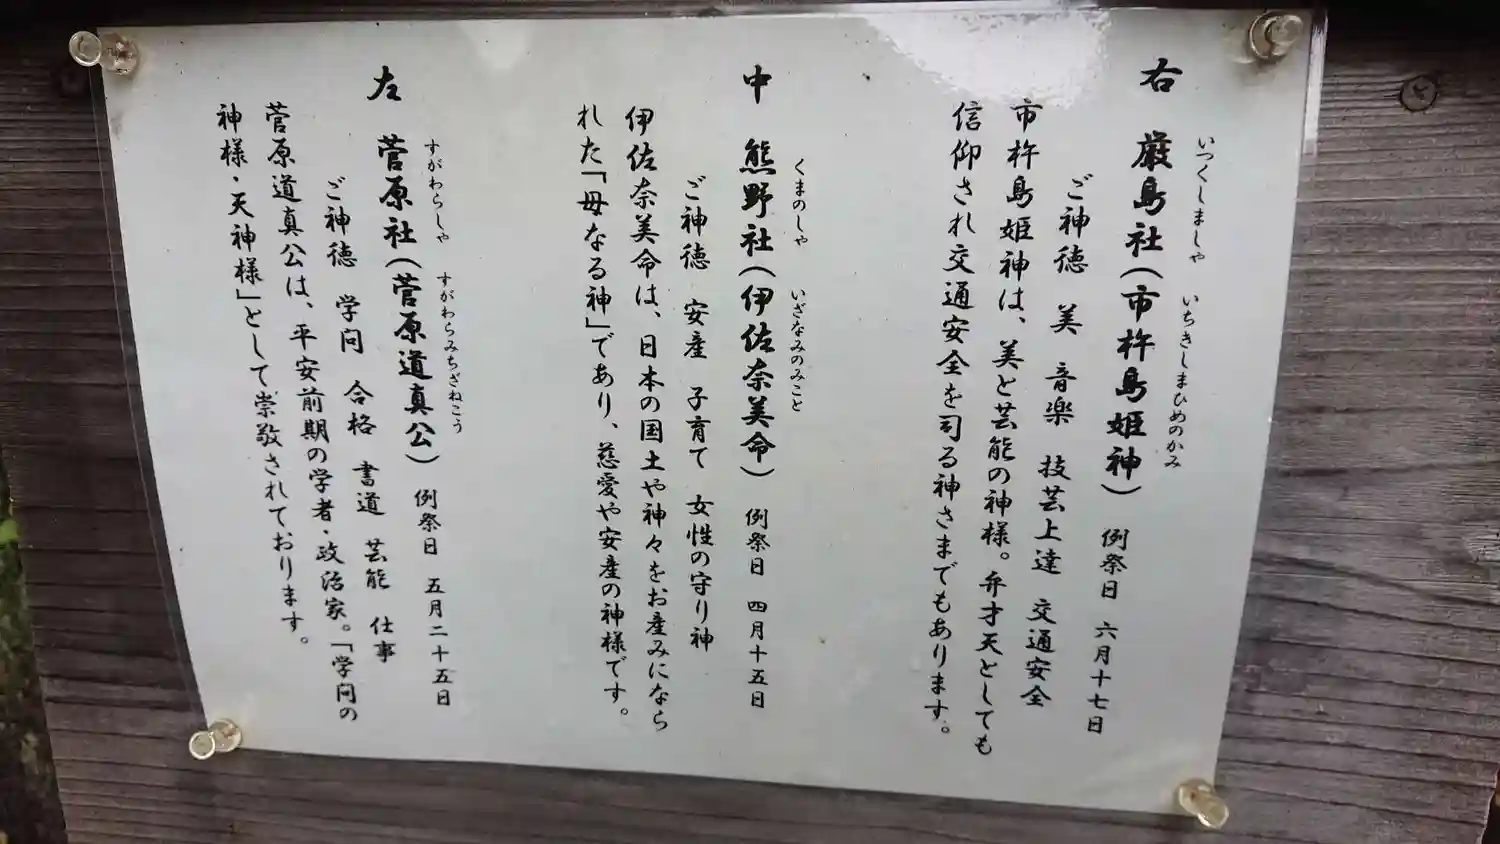 右　厳島社（市杵島姫神）　例祭日　六月十七日
いつくしましゃ　いちきしまひめのかみ
ご神徳　美　音楽　技芸上達　交通安全
市杵島姫神は、美と芸能の神様。弁才天としても
信仰され交通安全を司る神さまでもあります。
中　熊野社（伊佐奈美命）　例祭日　四月十五日
くまのしゃ　いざなみのみこと
ご神徳　安産　子育て　女性の守り神
伊佐奈美命は、日本の国土や神々をお産みになら
れた「母なる神」であり、慈愛や安産の神様です。
左　菅原社（菅原道真公）　例祭日　五月二十五日
すがわらしゃ　すがわらみちざねこう
ご神徳　学問　合格　書道　芸能　仕事
菅原道真公は、平安前期の学者・政治家。「学問の
神様・天神様」として崇敬されております。